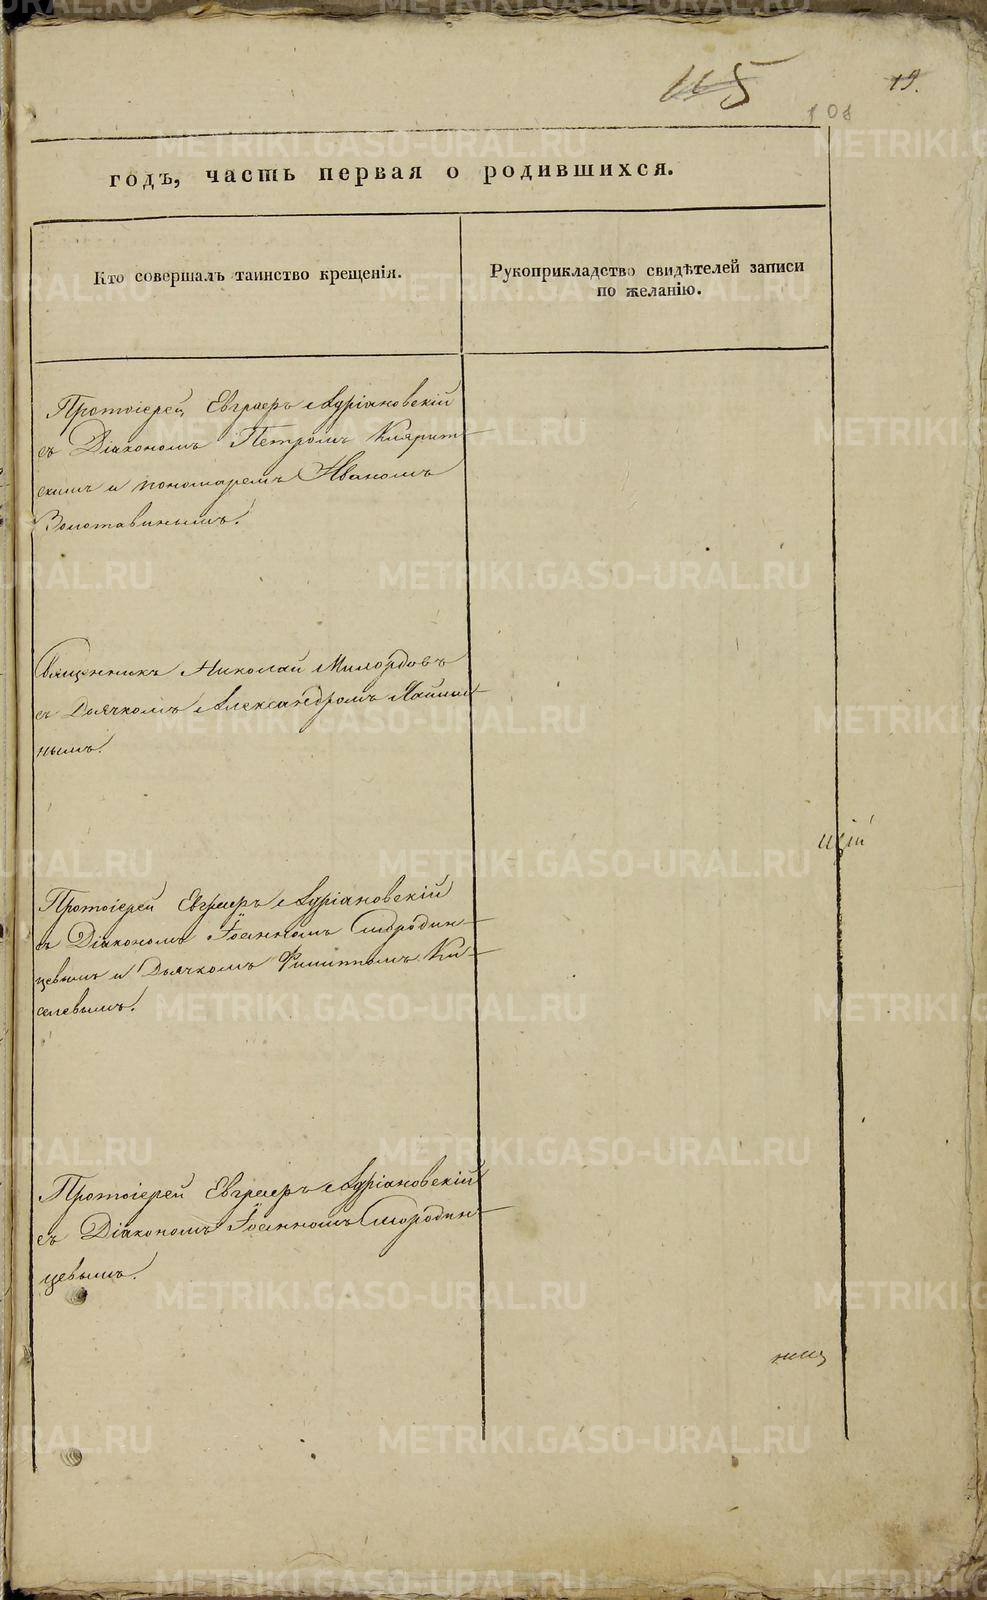 115
19.
101
годъ, часть первая о родившихся.
Кто совершалъ таинство крещенія.
Рукоприкладство свидѣтелей записи
по желанію.
Протоіерей Евграфъ Адріановскій
съ Діакономъ Петромъ
скимъ и пономаремъ Иваномъ
Золотавинымъ.
Священникъ Николай Милордовъ
съ Дьячкомъ Александромъ
нымъ.
Протоіерей Евграфъ Адріановскій
съ Діакономъ Іоанномъ Смородин-
цевымъ и Дьячкомъ Филиппомъ Ки-
селевымъ.
Протоіерей Евграфъ Адріановскій
съ Діакономъ Іоанномъ Смородин-
цевымъ.
METRIKI.GASO-URAL.RU